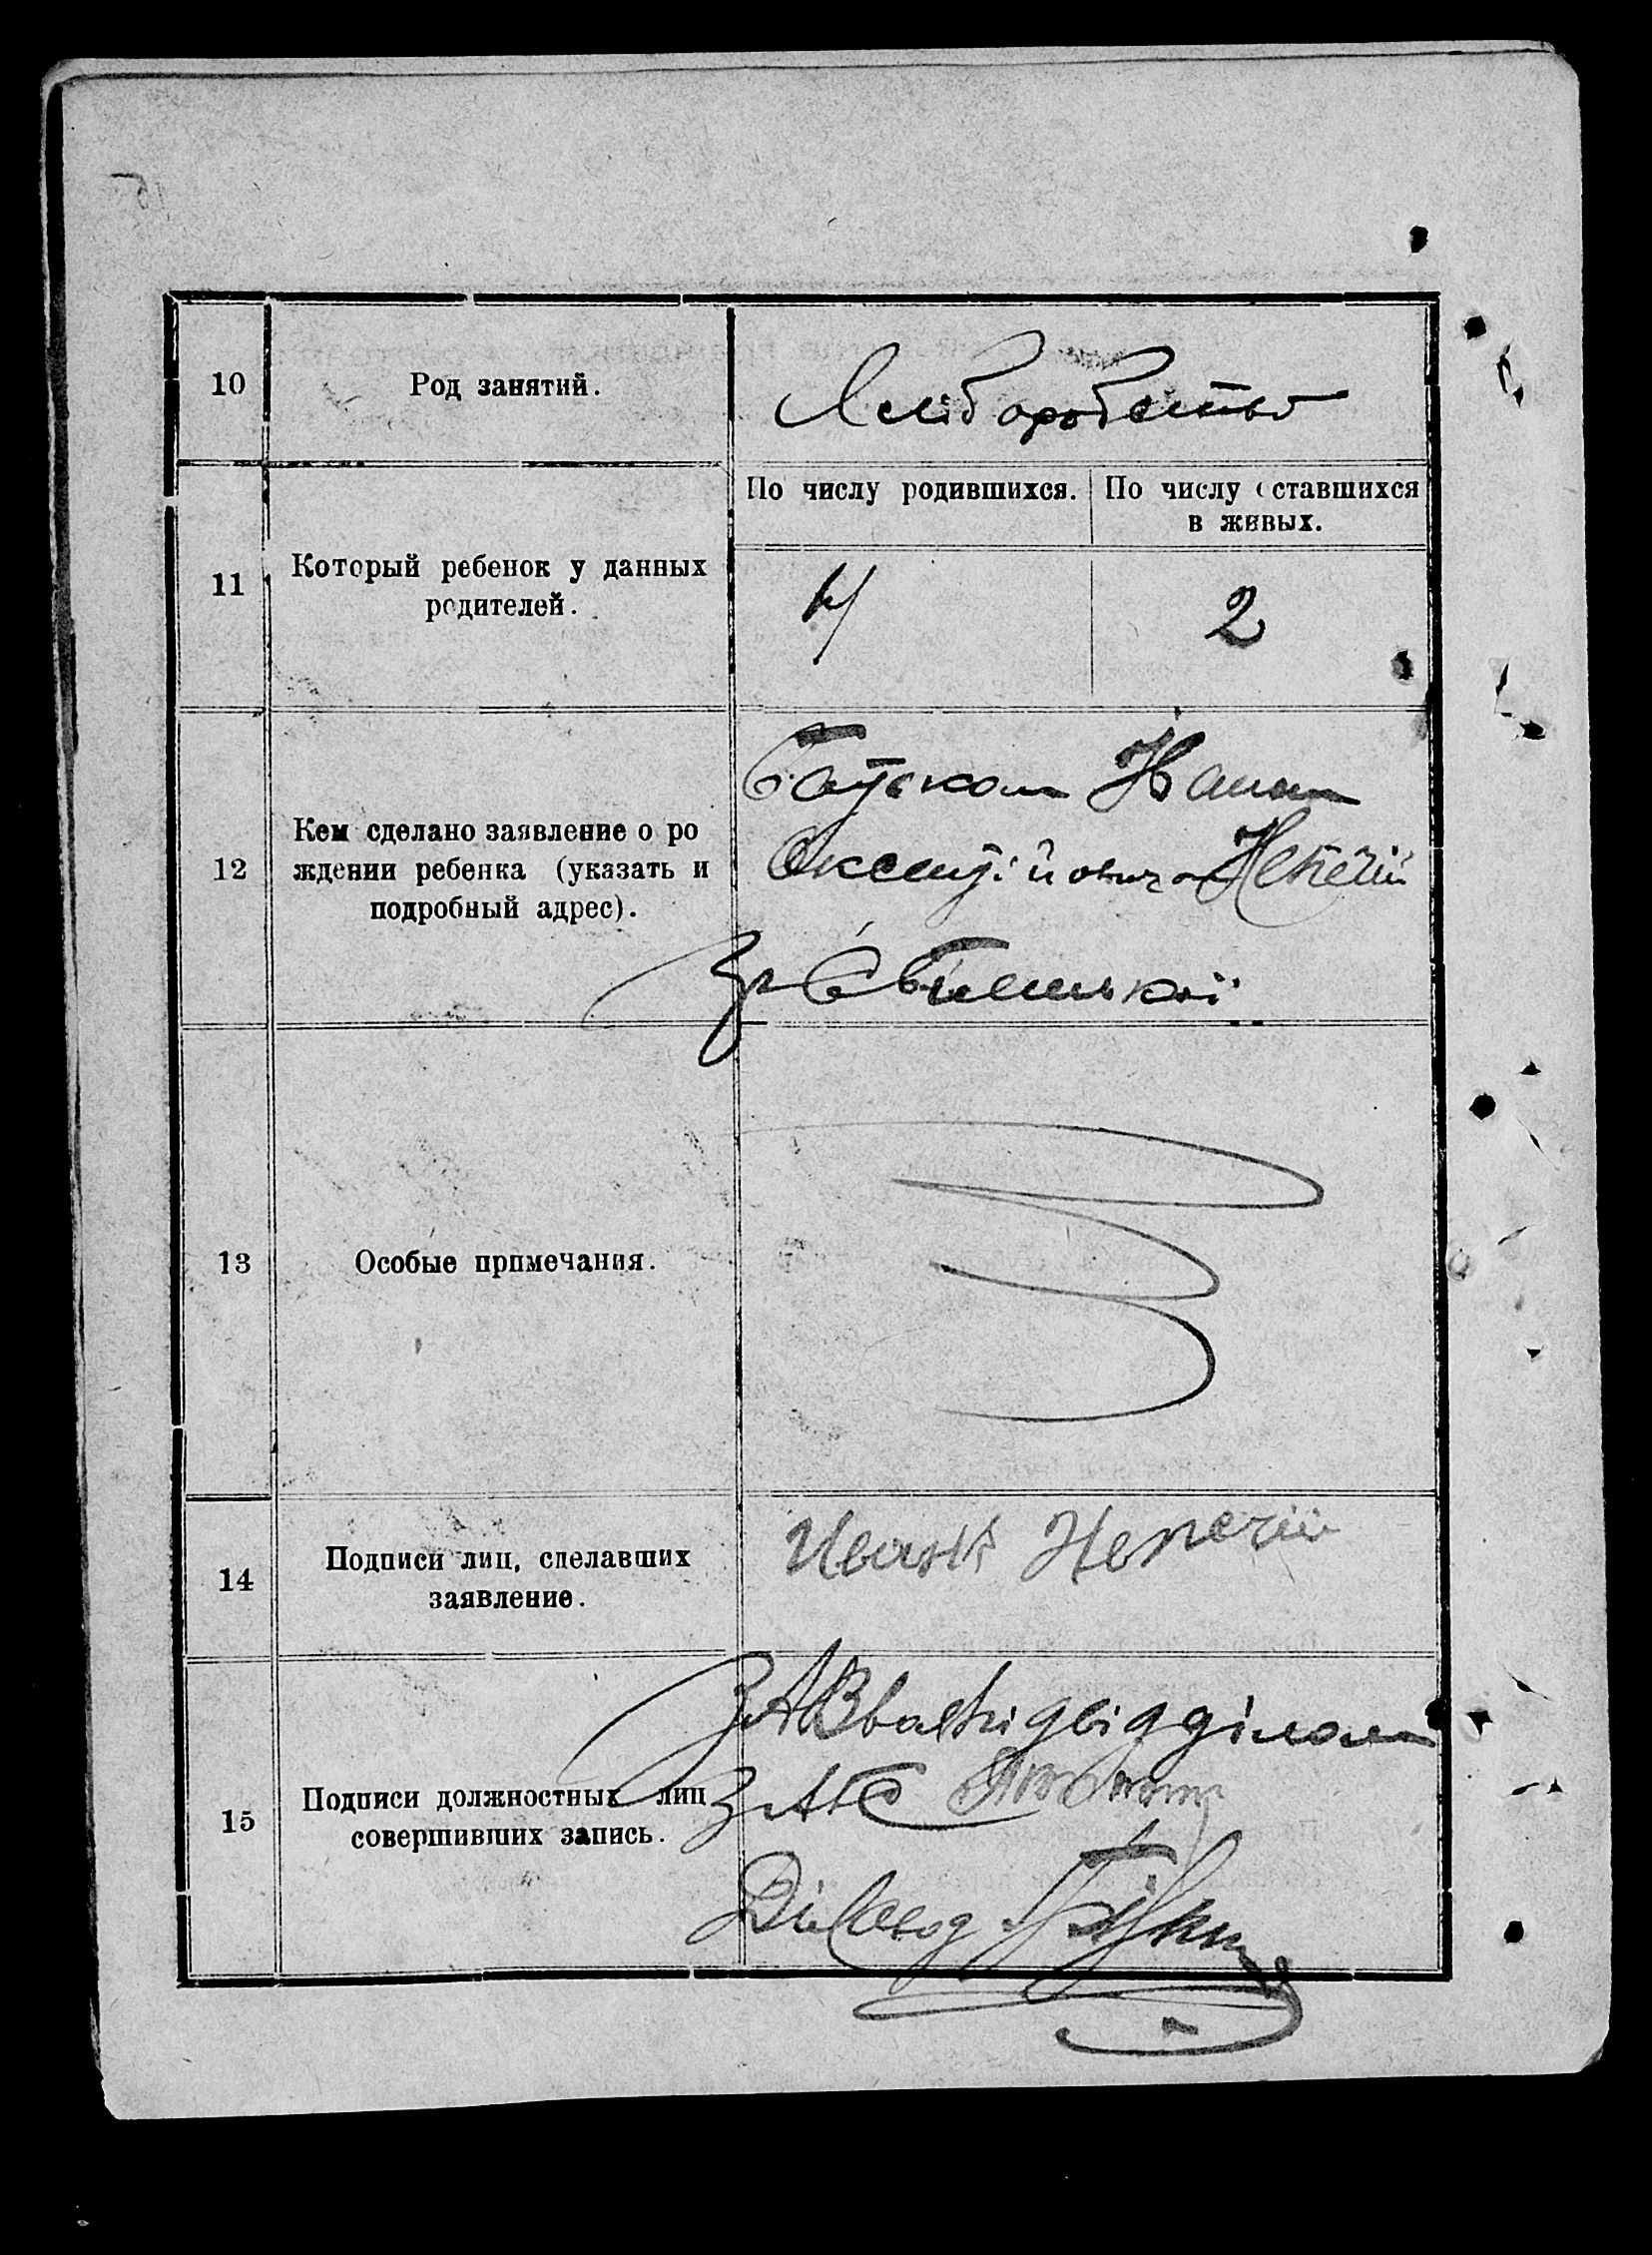 10
Род занятий.
Хліборобство
11
Который ребенок у данных
родителей.
По числу родившихся.
По числу оставшихся
в живых.
4
2
12
Кем сделано заявление о ро
ждении ребенка (указать и
подробный адрес).
Батьком Іваном
Оксентійовичом Непечій
13
Особые примечания.
14
Подписи лиц, сделавших
заявление.
Иван Непечій
15
Подписи должностных лиц
совершивших запись.
ЗАГС
Діловод